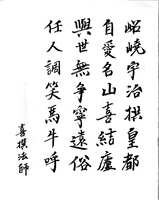 岧嶢宇治撰皇都
自愛名山喜結廬
與世無爭寧遠俗
任人調笑馬牛呼
喜撰法師